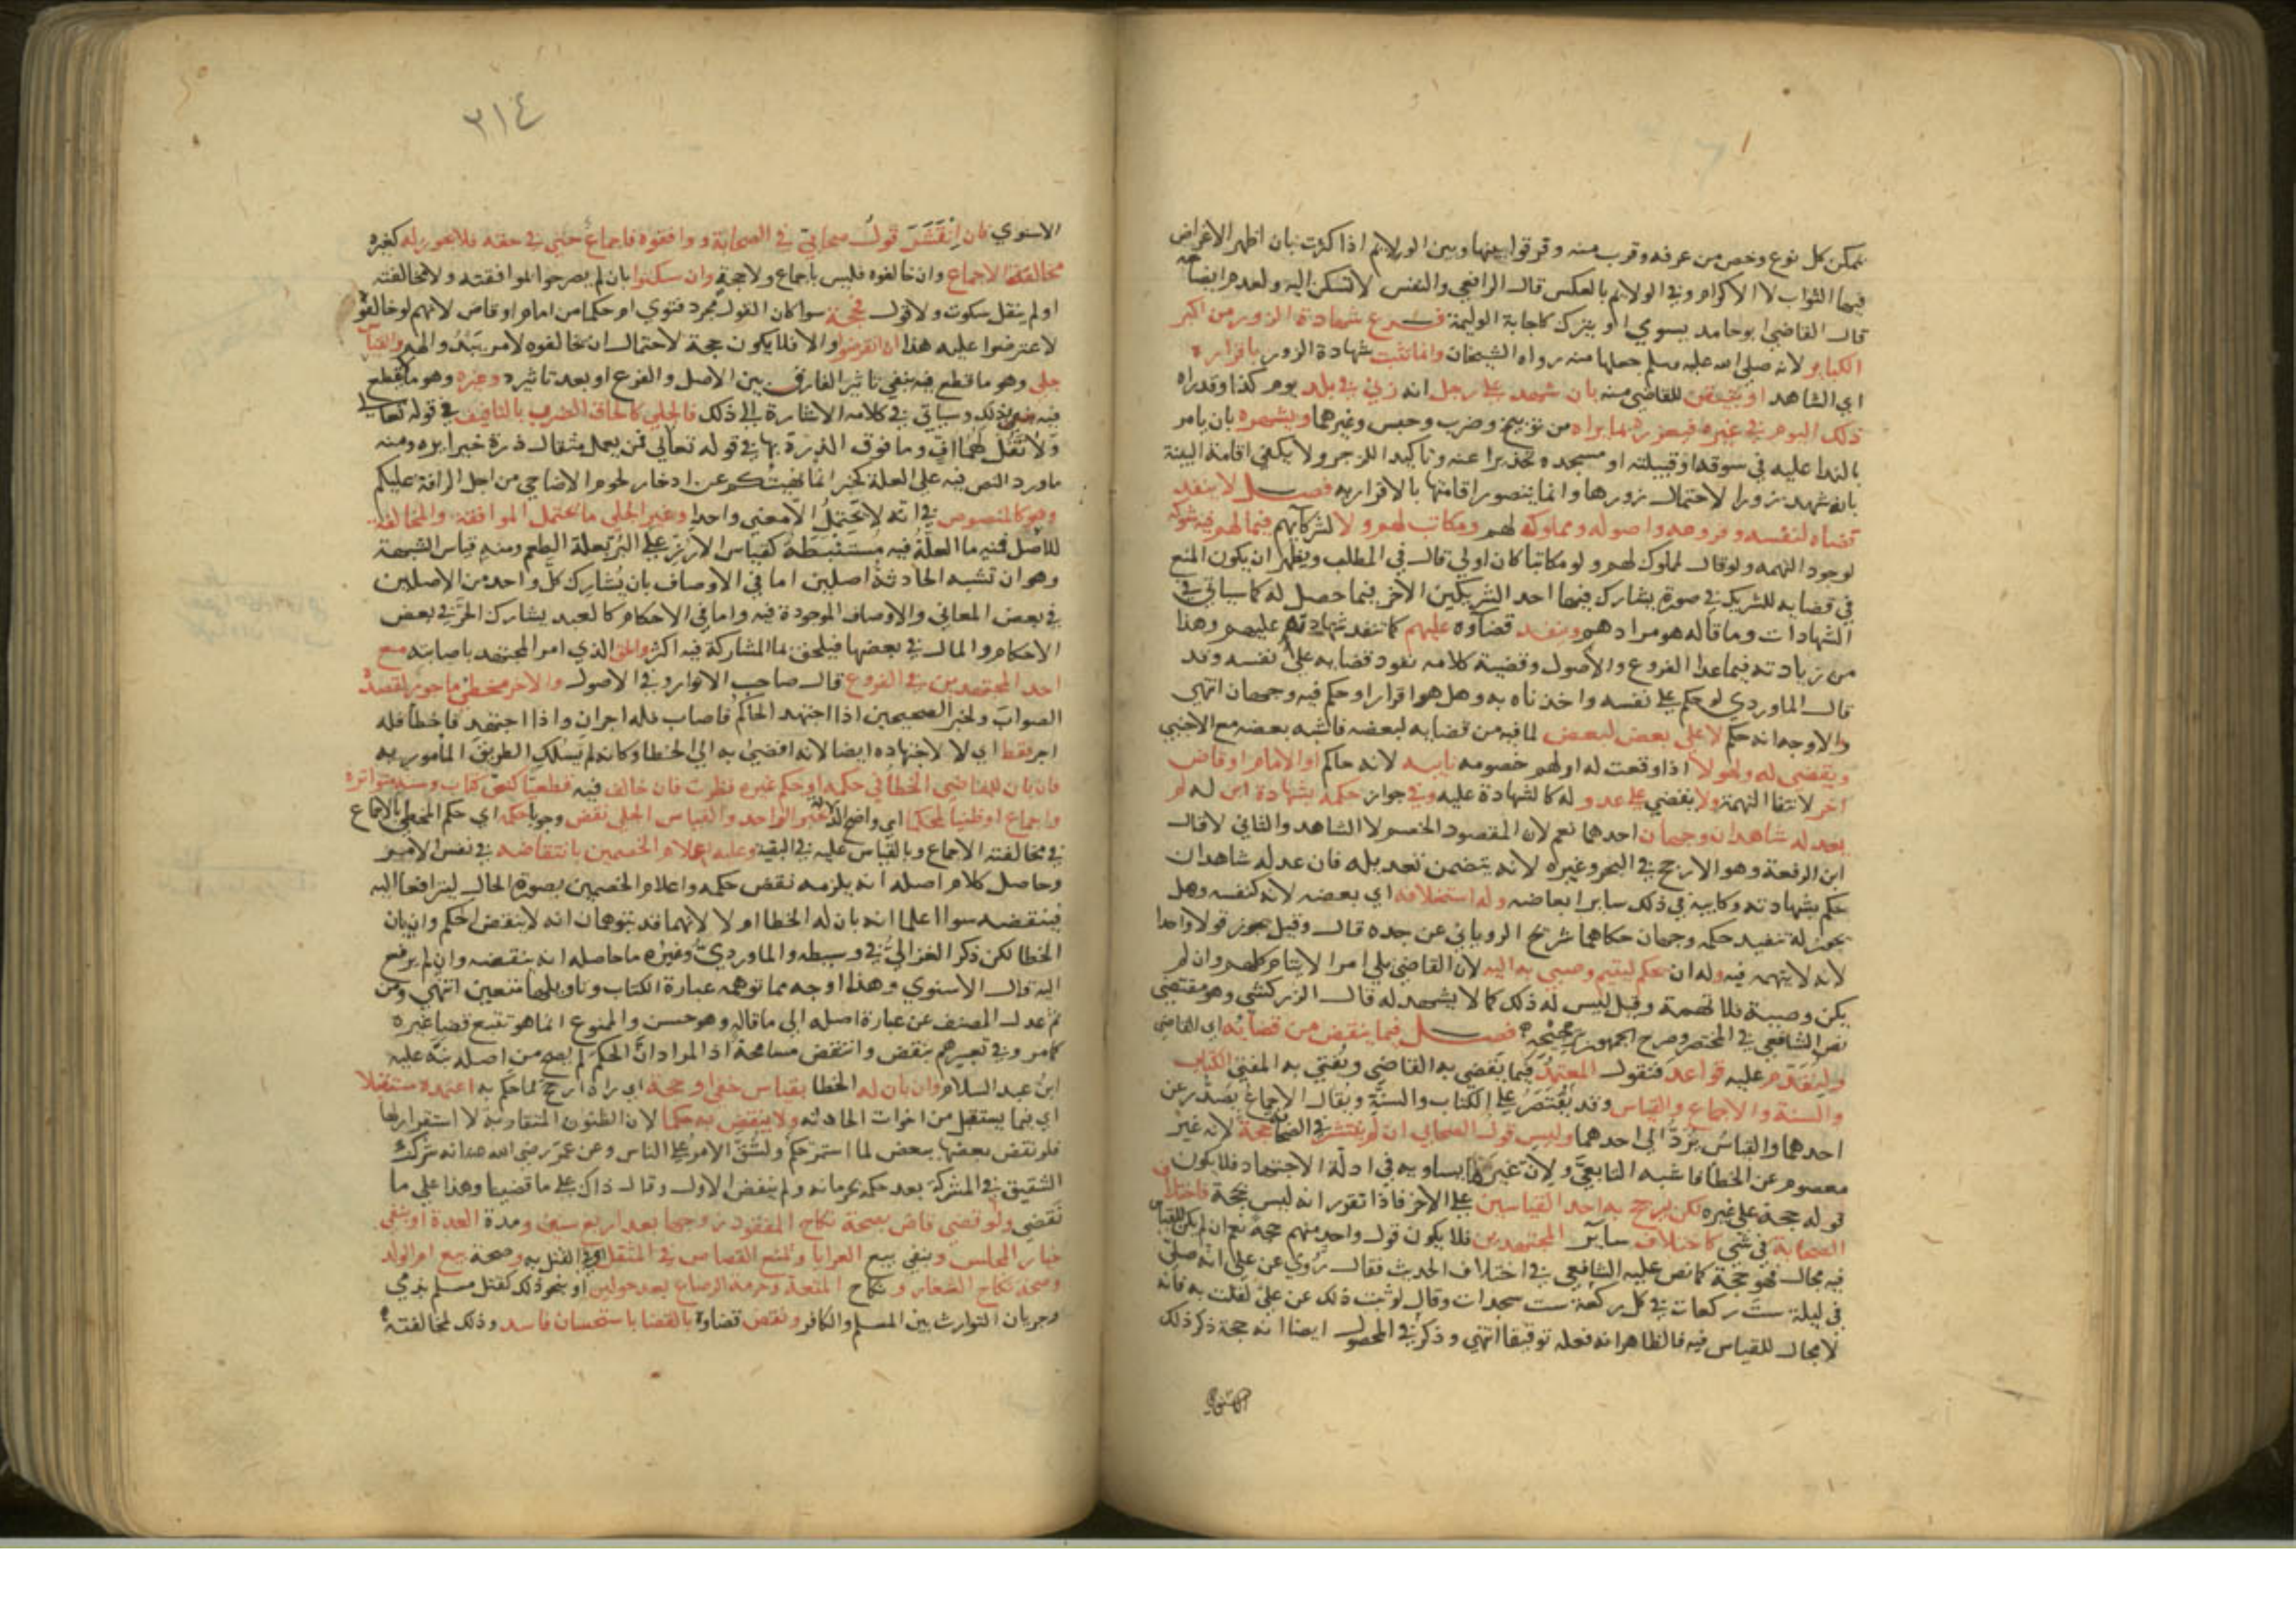 يمكن كل نوع وخص من عرفه وقرب منه وفرقوا بينها وبين الولايم اذا كثرت بان اظهر الاغراض
فيها الثواب لا الاكرام وفي الولايم بالعكس قال الرافعي والنفس لا تسكن اليه ولعدم ايضاحه
قال القاضي ابو حامد يسوي او يترك كاجابة الوليمة فرع شهادة الزور من اكبر
الكباير لانه صلى الله عليه وسلم جعلها منه رواه الشيخان وانما تثبت شهادة الزور باقراره
اي الشاهد او بتيقن للقاضي منه بان شهد على رجل انه زني في بلد يوم كذا وقد راه
ذلك اليوم في غيره فيعزره بما يراه من توبيخ وضرب وحبس وغيرهما ويشهره بان يامر
بالندا عليه في سوقه او قبيلته او مسجده تحذيرا عنه وتاكيدا للزجر ولا يكفي اقامة البينة
بانه شهد زورا لاحتمال زورها وانما يتصور اقامتها بالاقرار به فصل لا ينفذ
قضاه لنفسه وفروعه واصوله ومملوكه لهم ومكاتب لهم ولا لشركائهم فيما لهم فيه شركة
لوجود التهمه ولو قال لمملوك لهم ولو مكاتبا كان اولي قال في المطلب ويظهر ان يكون المنع
في قضايه للشريك في صورة يشارك فيها احد الشريكين الاخر فيما حصل له كما سياتي في
الشهادات وما قاله هو مرادهم وينفذ قضاوه عليهم كما تنفذ شهادته عليهم وهذا
من زيادته فيما عدا الفروع والاصول وقضية كلامه نفوذ قضايه على نفسه وقد
قال الماوردي لو حكم على نفسه واخذناه به وهل هو اقرار او حكم فيه وجهان انتهي
والاوجه انه حكم لا على بعض لبعض لما فيه من قضايه لبعضه فاشبه بعضه مع الاجنبي
ويقضي له ولهولا اذا وقعت له او لهم خصومه نايبه لانه حاكم او الامام او قاض
اخر لانتفا التهمة ولا يقضي على عدو له كالشهادة عليه وفي جواز حكمه بشهادة ابن له لم
يعدله شاهدان وجهان احدهما نعم لان المقصود الخصم لا الشاهد والثاني لا قال
ابن الرفعة وهو الارجح في البحر وغيره لانه يتضمن تعديله فان عدله شاهدان
حكم بشهادته وكابنه في ذلك ساير ابعاضه وله استخلافه اي بعضه لانه كنفسه وهل
يجوز له تنفيذ حكمه وجهان حكاهما شريح الروياني عن جده قال وقيل يجوز قولا واحدا
لانه لا يتهمه فيه وله ان يحكم ليتيم وصيي به اليه لان القاضي يلي امر الايتام كلهم وان لم
يكن وصيه فلا تهمة وقيل ليس له ذلك كما لا يشهد له قال الزركشي وهو مقتضي
نص الشافعي في المختصر وصرح الجمهور بترجيحه فصل فيما ينقض من قضايه اي القاضي
ولنقدم عليه قواعد فنقول المعتمد فيما يقضي به القاضي ويفتي به المفتي الكتاب
والسنة والاجماع والقياس وقد يقتصر على الكتاب والسنة ويقال الاجماع يصدر عن
احدهما والقياس يرد الى احدهما وليس قول الصحابي ان لم ينتشر في الصحابة حجة لانه غير
معصوم عن الخطا فاشبه التابعي ولان غيره يساويه في ادلة الاجتهاد فلا يكون
قوله حجة على غيره لكن يرجح به احد القياسين على الاخر فاذا تقرر انه ليس بحجة فاختلاف
الصحابة في شي كاختلاف ساير المجتهدين فلا يكون قول واحد منهم حجة نعم ان لم يكن للقياس
فيه مجال فهو حجة كما نص عليه الشافعي في اختلاف الحديث فقال روي عن علي انه صلى
في ليلة ست ركعات في كل ركعة ست سجدات وقال لو ثبت ذلك عن علي لقلت به فانه
لا مجال للقياس فيه فالظاهر انه فعله توقيفا انتهي وذكر في المحصول ايضا انه حجة ذكر ذلك
الاسنوي
٣١٤
الاسنوي فان انتشر قول صحابي في الصحابة ووافقوه فاجماع حتي في حقه فلا يجوز له كغيره
مخالفة الاجماع وان خالفوه فليس باجماع ولا حجة وان سكتوا بان لم يصرحوا بموافقته ولا مخالفته
او لم ينقل سكوت ولا قول فحجة سوا كان القول مجرد فتوي او حكما من امام او قاض لانهم لو خالفوه
لاعترضوا عليه هذا ان انقرضوا والا فلا يكون حجة لاحتمال ان يخالفوه لامر يبدو لهم والقياس
جلي وهو ما قطع فيه بنفي تاثير الفارق بين الاصل والفرع او بعد تاثيره وغيره وهو ما لا يقطع
فيه بذلك وسياتي في كلامه الاشارة الى ذلك فالجلي كالحاق الضرب بالتافيف في قوله تعالي
ولا تقل لهما اف وما فوق الذرة بها في قوله تعالي فمن يعمل مثقال ذرة خيرا يره ومنه
ما ورد النص فيه على العلة كخبر انما نهيتكم عن ادخار لحوم الاضاحي من اجل الرافة عليكم
وهو كالمنصوص في انه لا يحتمل الا معني واحدا وغير الجلي ما يحتمل الموافقة والمخالفة
للاصل فمنه ما العلة فيه مستنبطة كقياس الارز على البر بعلة الطعم ومنه قياس الشبه
وهو ان تشبه الحادثة اصلين اما في الاوصاف بان يشارك كل واحد من الاصلين
في بعض المعاني والاوصاف الموجودة فيه واما في الاحكام كالعبد يشارك الحر في بعض
الاحكام والمال في بعضها فيلحق بما المشاركة فيه اكثر والحق الذي امر المجتهد باصابته مع
احد المجتهدين في الفروع قال صاحب الانوار وفي الاصول والاخر مخطئ ماجور لقصده
الصواب ولخبر الصحيحين اذا اجتهد الحاكم فاصاب فله اجران واذا اجتهد فاخطا فله
اجر فقط اي لا لاجتهاده ايضا لانه افضي به الي الخطا وكانه لم يسلك الطريق المامور به
فان بان للقاضي الخطا في حكمه او حكم غيره نظرت فان خالف فيه قطعيا كنص كتاب وسنة متواترة
واجماع او ظنيا محكما اي واضح الدلالة كخبر الواحد والقياس الجلي نقض وجوبا حكمه اي حكم المخطي بالاجماع
في مخالفته الاجماع وبالقياس عليه في البقية وعليه اعلام الخصمين بانتقاضه في نفس الامر
وحاصل كلام اصله انه يلزمه نقض حكمه واعلام الخصمين بصورة الحال ليترافعا اليه
فينقضه سوا اعلما انه بان له الخطا او لا لانهما قد يتوهمان انه لا ينقض الحكم وان بان
الخطا لكن ذكر الغزالي في وسيطه والماوردي وغيره ما حاصله انه ينقضه وان لم يرفع
اليه قال الاسنوي وهذا اوجه مما توهمه عبارة الكتاب وتاويلها متعين انتهي ومن
ثم عدل المصنف عن عبارة اصله الي ما قاله وهو حسن والممنوع انما هو تتبع قضا غيره
كما مر وفي تعبيرهم بنقض وانتقض مسامحة اذ المراد ان الحكم لم يصح من اصله نبه عليه
ابن عبد السلام وان بان له الخطا بقياس خفي او حجة اي راه ارجح مما حكم به اعتمده مستقبلا
اي فيما يستقبل من اخوات الحادثه ولا ينقض به حكما لان الظنون المتقاربة لا استقرار لها
فلو نقض بعضها ببعض لما استمر حكم ولشق الامر على الناس وعن عمر رضي الله عنه انه شرك
الشقيق في المشركة بعد حكمه بحرمانه ولم ينقض الاول وقال ذاك على ما قضينا وهذا علي ما
نقضي ولو قضي قاض بصحة نكاح المفقود زوجها بعد اربع سنين ومدة العدة او بنفي
خيار المجلس وبنفي بيع العرايا ومنع القصاص في المثقل اي في القتل به وصحة بيع ام الولد
وصحة نكاح الشغار ونكاح المتعة وحرمة الرضاع بعد حولين او نحو ذلك كقتل مسلم بذمي
وجريان التوارث بين المسلم والكافر ونقض قضاوه بالقضا باستحسان فاسد وذلك لمخالفته